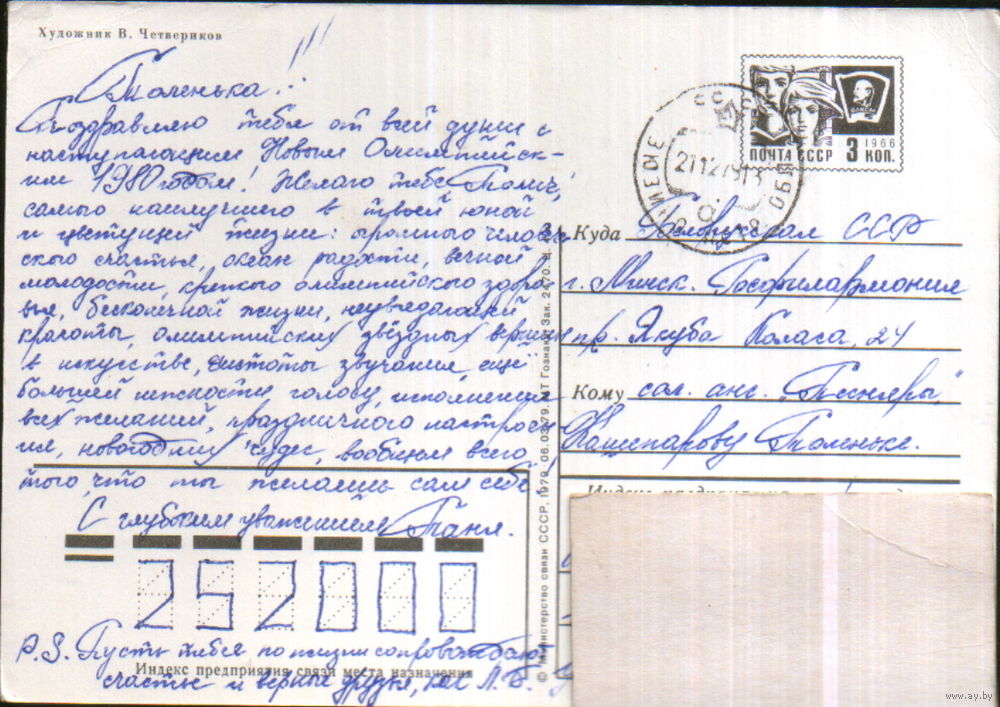 Художник В. Четвериков
Толенька!!!
Поздравляю тебя от всей души с
наступающим Новым Олимпийск-
им 1980 годом! Желаю тебе, Толич,
самого наилучшего в твоей юной
и цветущей жизни: огромного челове
ского счастья, океан радости, вечной
молодости, крепкого олимпийского здоро
вья, бесконечной жизни, неувядаемой
красоты, олимпийских звёздных вершин
в искусстве, чистоты звучания, ещё
большей нежности голосу, исполнения
всех желаний, праздничного настроен
ия, новогодних чудес, вообщем всего
того, что ты желаешь сам себе!
С глубоким уважением Таня.
252000
P.S. Пусть тебя по жизни сопровождают
Индекс предприятия связи места назначения
счастье и верные друзья, как Л.Б.
© Министерство связи СССР, 1979. 06.03.79. МТ Гознака. Зак. 2470.
ПОЧТА СССР 3 КОП.
1966
ВЛКСМ
211279
Куда Белорусская ССР
г. Минск. Госфилармония
пр. Якуба Коласа, 24
Кому сол. анс. "Песняры"
Кашепарову Толеньке.
www.ay.by